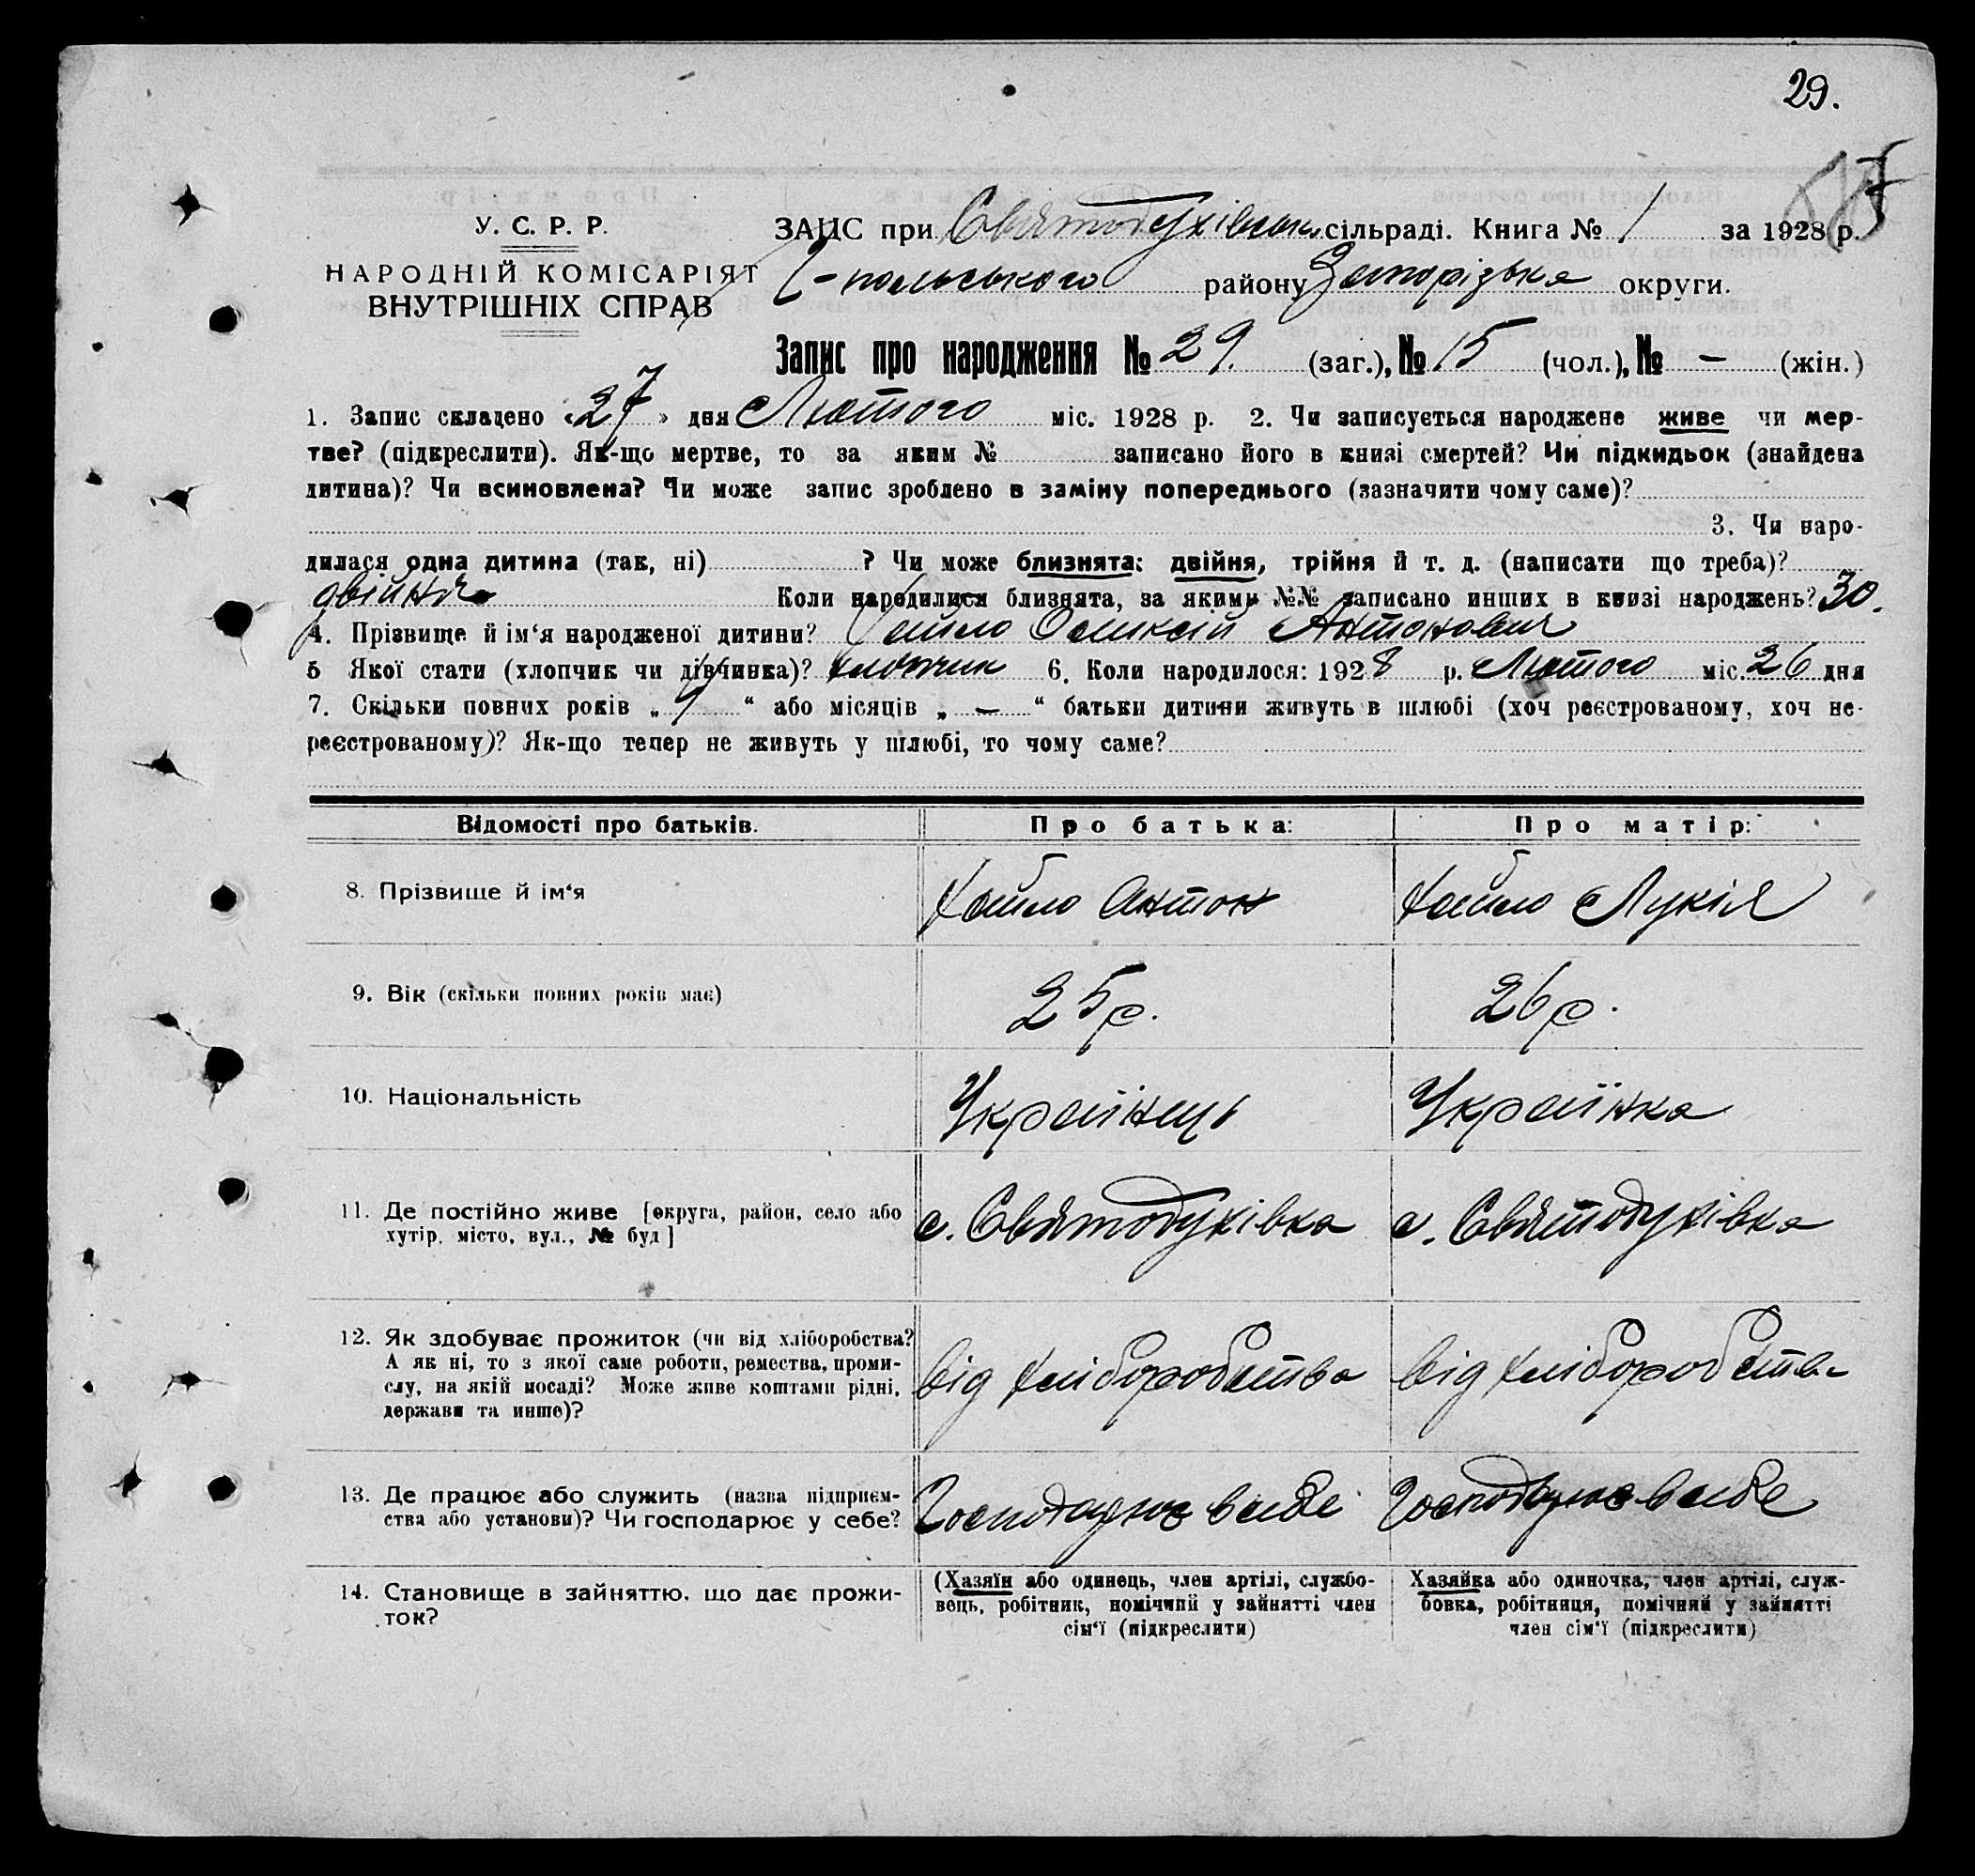 29.
У. С. Р. Р.
НАРОДНІЙ КОМІСАРІЯТ
ВНУТРІШНІХ СПРАВ
ЗАЦС при Святодухівськ. сільраді. Книга № 1 за 1928 р.
району Запорізька округи.
Запис про народження № 29. (заг.), № 15 (чол.), № — (жін.)
1. Запис складено «27» дня Лютого міс. 1928 р. 2. Чи записується народжене живе чи мер-
тве? (підкреслити). Як-що мертве, то за яким № записано його в книзі смертей? Чи підкидьок (знайдена
дитина)? Чи всиновлена? Чи може запис зроблено в заміну попереднього (зазначити чому саме)?
3. Чи наро-
дилася одна дитина (так, ні) ? Чи може близнята: двійня, трійня й т. д. (написати що треба)?
двійня Коли народилися близнята, за якими №№ записано инших в книзі народжень? 30.
4. Прізвище й ім‘я народженої дитини? Оликсій Антонович
5 Якої стати (хлопчик чи дівчинка)? хлопчик 6. Коли народилося: 1928 р. Лютого міс. 26 дня
7. Скільки повних років „ “ або місяців „ — “ батьки дитини живуть в шлюбі (хоч реєстрованому, хоч не-
реєстрованому)? Як-що тепер не живуть у шлюбі, то чому саме?
Відомості про батьків. Про батька: Про матір:
8. Прізвище й ім‘я Антон Лукія
9. Вік (скільки повних років має) 25 р. 26 р.
10. Національність Українець Українка
11. Де постійно живе [округа, район, село або
хутір, місто, вул., № буд] с. Святодухівка с. Святодухівка
12. Як здобуває прожиток (чи від хліборобства?
А як ні, то з якої саме роботи, ремества, проми-
слу, на якій посаді? Може живе коштами рідні,
держави та инше)? від хліборобства від хліборобства
13. Де працює або служить (назва підприєм-
ства або установи)? Чи господарює у себе? Господарює в себе Господарює в себе
14. Становище в зайняттю, що дає прожи-
ток?
(Хазяїн або одинець, член артілі, службо-
вець, робітник, помічний у зайнятті член
сім‘ї (підкреслити)
Хазяйка або одиночка, член артілі, служ-
бовка, робітниця, помічний у зайнятті
член сім‘ї (підкреслити)